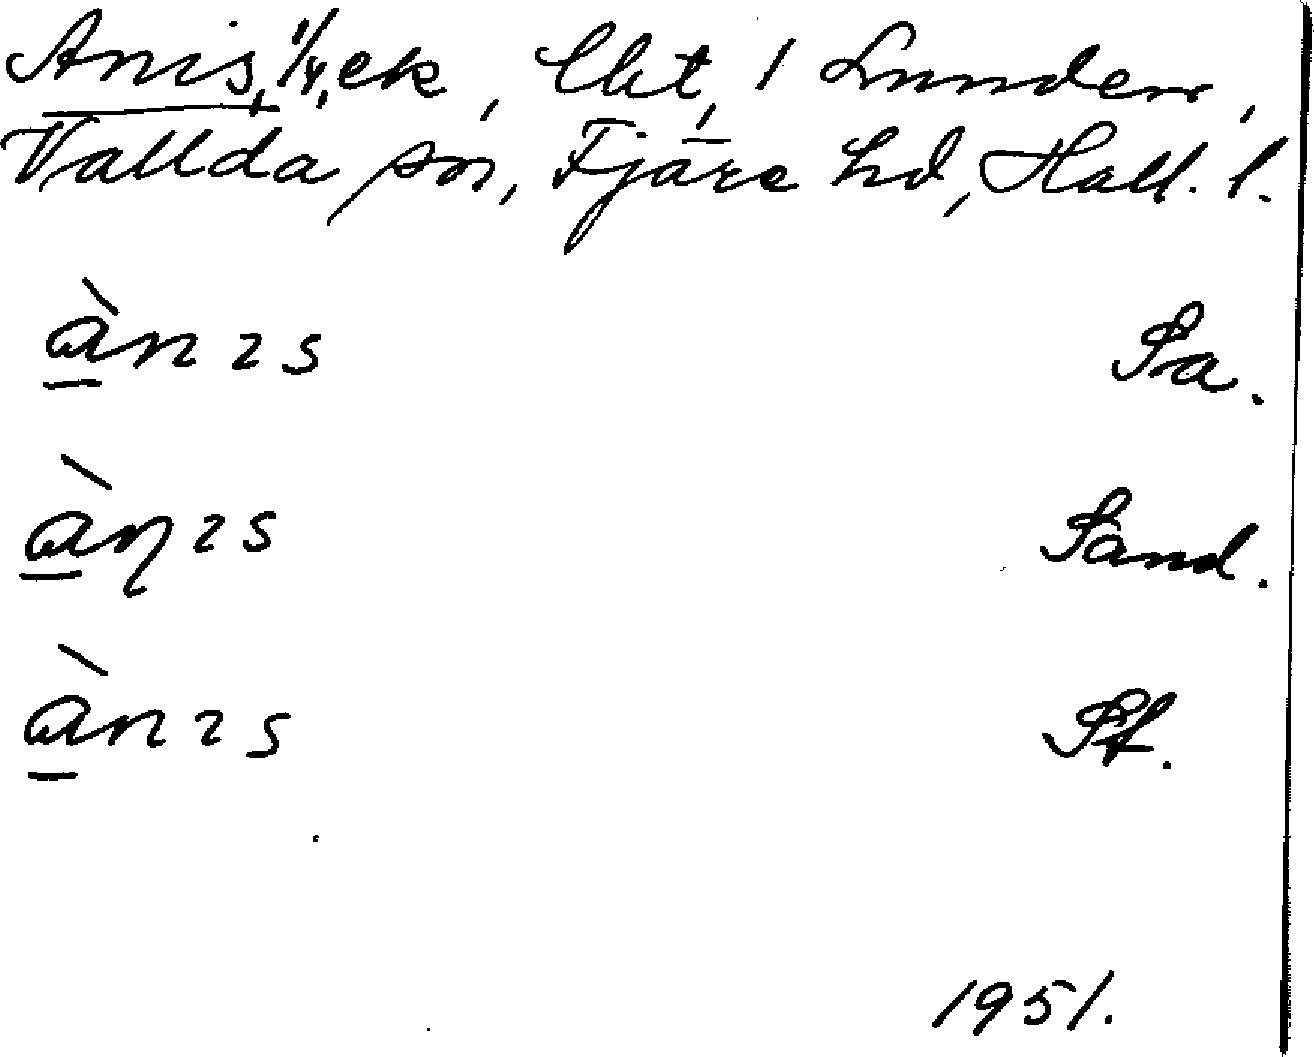 Anis, 1/4, ek, lht, 1 Lunden,
Vallda sn, Fjäre hd, Hall. l.
ànıs Pa.
àn̡ıs Pand.
ànıs Pf.
1951.